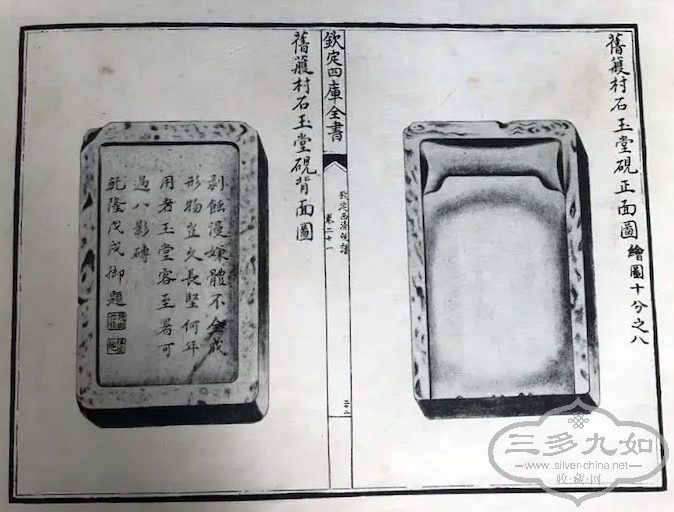 舊蘀村石玉堂硯正面圖 繪圖十分之八
欽定四庫全書
欽定西清硯譜
卷二十一
舊蘀村石玉堂硯背面圖
剥蝕漫嫌體不全成
形物豈久長堅何年
用者玉堂客至暑可
過八影磚
乾隆戊戌御題
三多九如
www.silver-china.net
收·藏·网